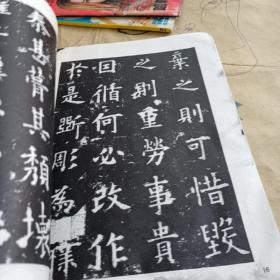 棄之則可惜毀
之則重勞事貴
因循何必改作
於是斲彫為樸
泰甚葺其頹壞